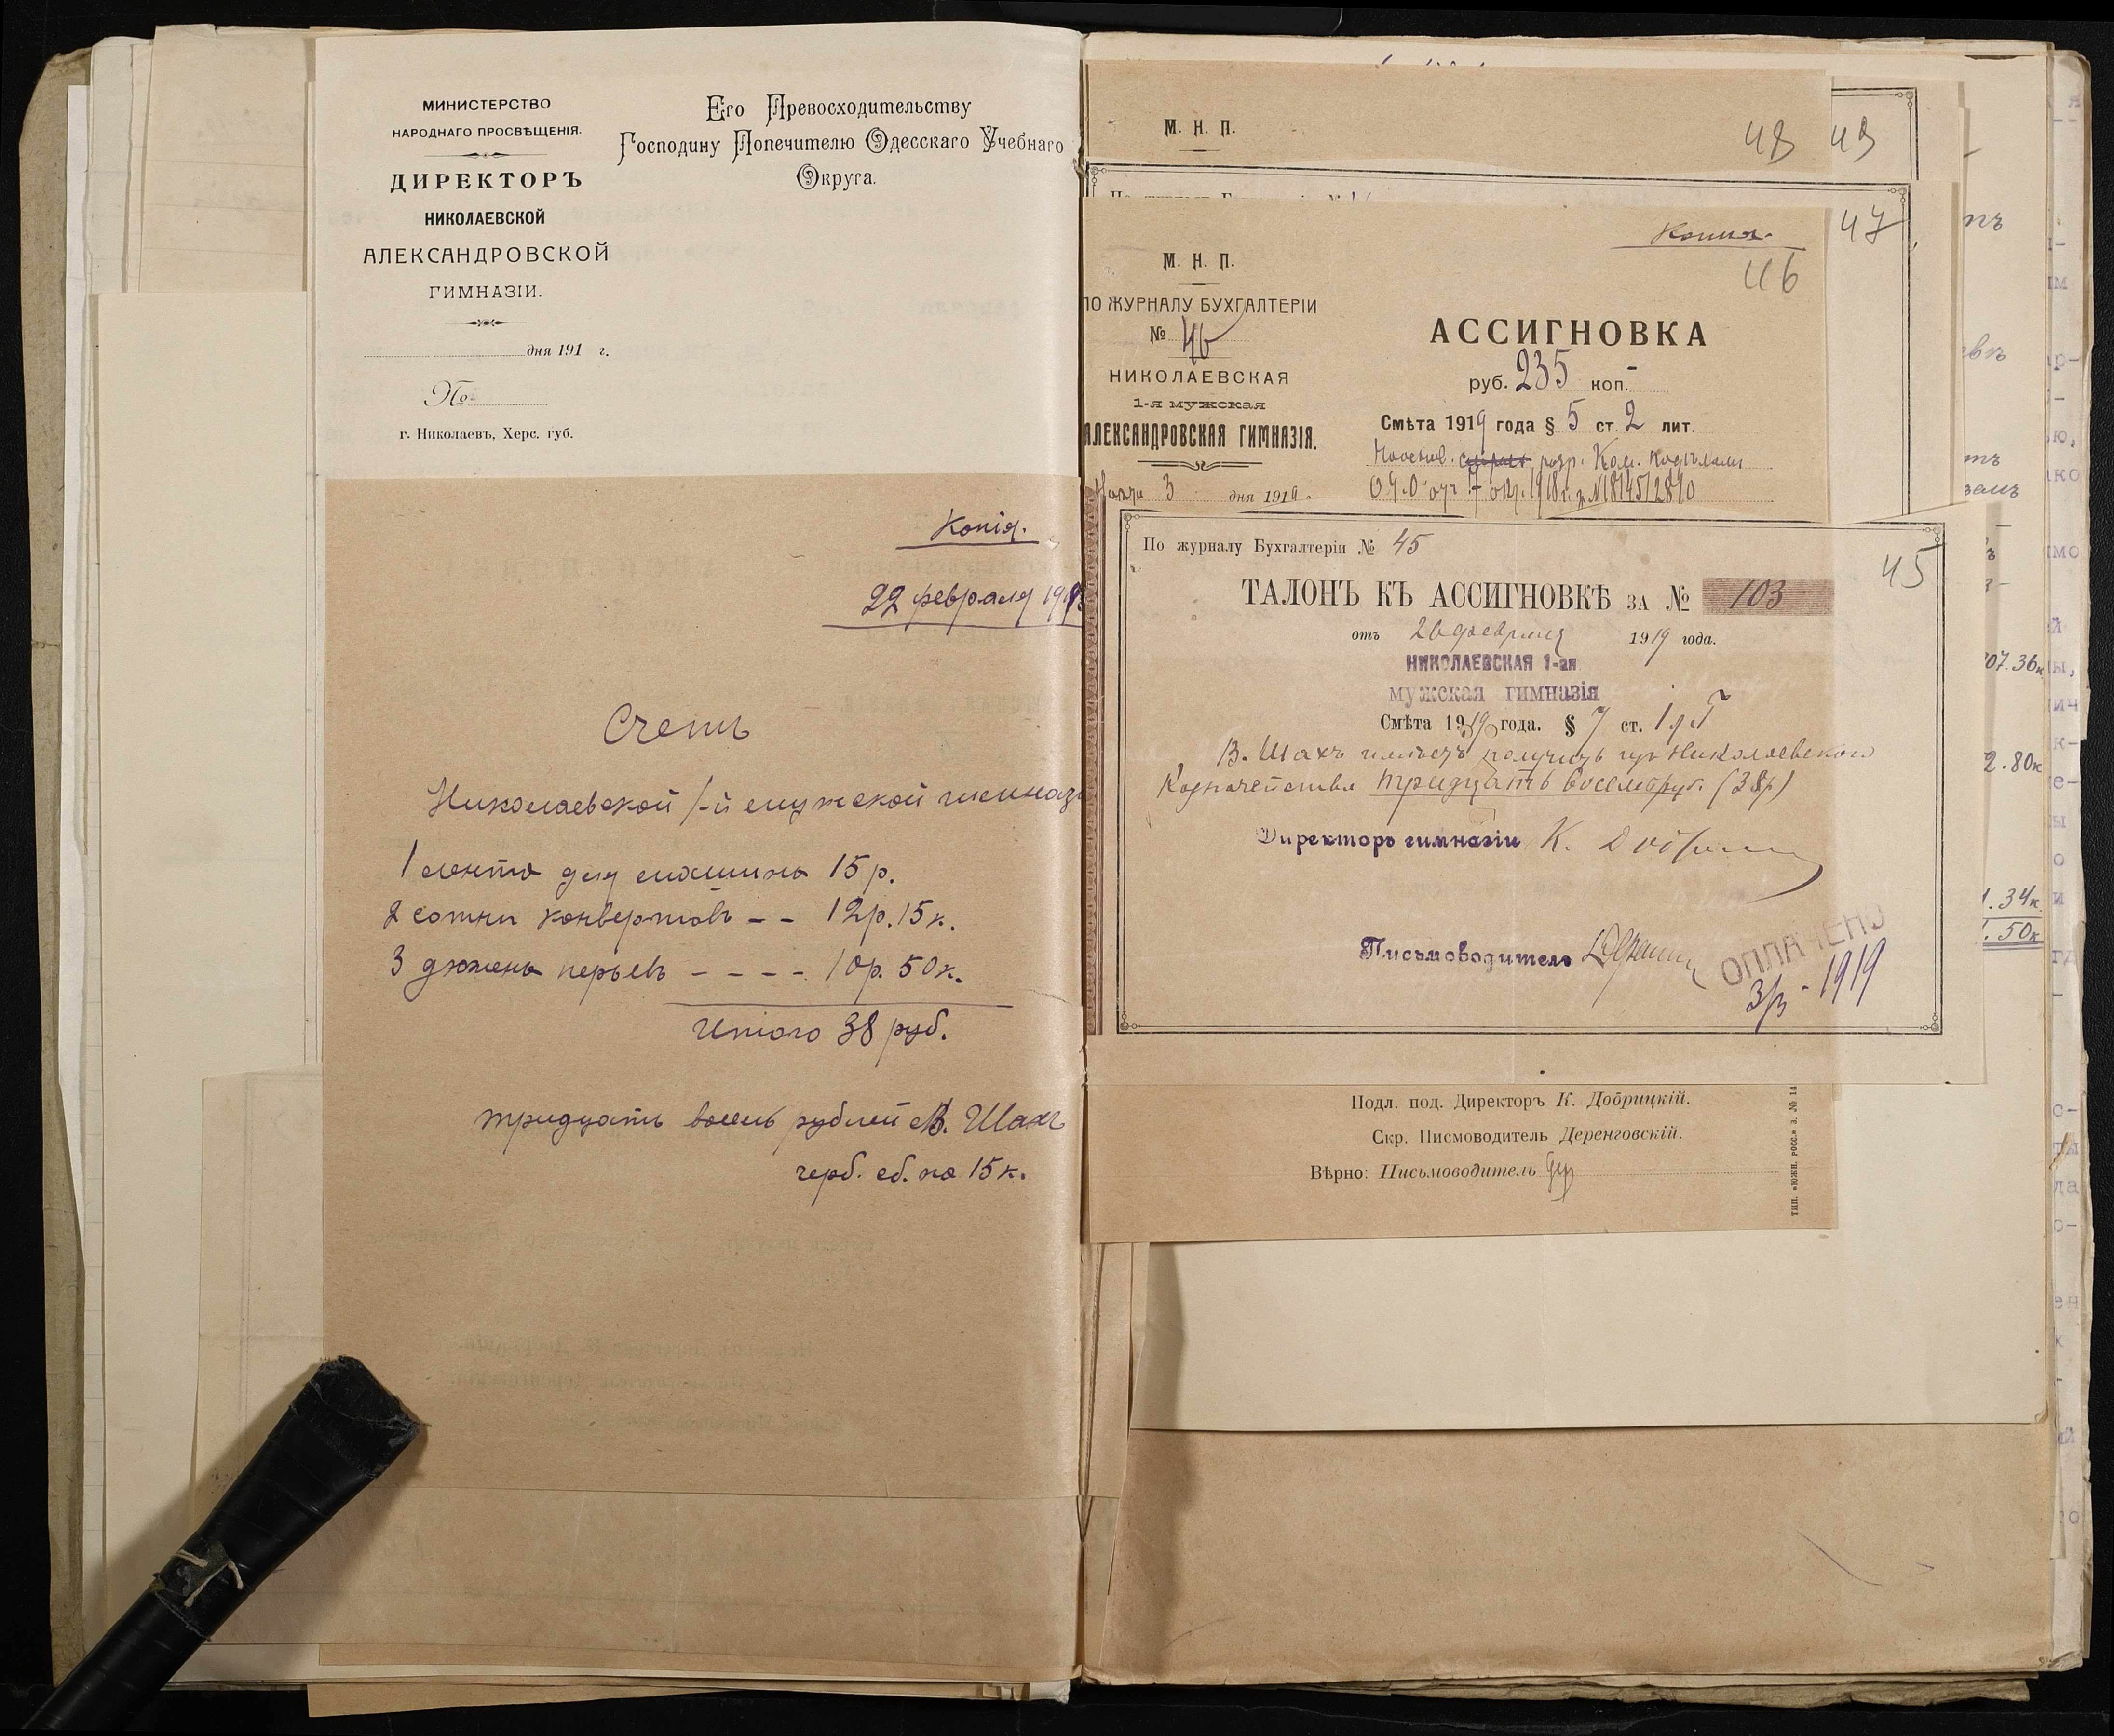 МИНИСТЕРСТВО
НАРОДНАГО ПРОСВѢЩЕНІЯ.
ДИРЕКТОРЪ
НИКОЛАЕВСКОЙ
АЛЕКСАНДРОВСКОЙ
ГИМНАЗІИ.
дня 191 г.
No
г. Николаевъ, Херс. губ.
Его Превосходительству
Господину Попечителю Одесскаго Учебнаго
Округа.
Копія.
22 февраля 191
Счетъ
Николаевской 1-й мужской гимназ
1 лента для машины 15 р.
2 сотни конвертовъ - - 12р. 15к.
3 дюжены перьевъ - - - - 10р. 50к.
Итого 38 руб.
тридцать восемь рублей В. Шахъ
герб. сб. на 15 к.
М. Н. П.
48
49
47
Копия.
46
М. Н. П.
ПО ЖУРНАЛУ БУХГАЛТЕРІИ
№ 46
НИКОЛАЕВСКАЯ
1-я мужская
АЛЕКСАНДРОВСКАЯ ГИМНАЗІЯ.
Марта 3 дня 1919
АССИГНОВКА
руб. 235 коп. -
Смѣта 1919 года § 5 ст. 2 лит.
разр. Ком.
1918 г.
По журналу Бухгалтеріи № 45
45
ТАЛОНЪ КЪ АССИГНОВКѢ ЗА № 103
отъ 26 февраля 1919 года.
НИКОЛАЕВСКАЯ 1-ая
мужская гимназія
Смѣта 1919 года. § 7 ст. 1
В. Шахъ имѣетъ получить изъ Николаевского
Казначейства тридцать восемь руб. (38р)
Директоръ гимназіи К.
Письмоводитель
ОПЛАЧЕНО
3/3 - 1919
Подл. под. Директоръ К. Добрицкій.
Скр. Писмоводитель Деренговскій.
Вѣрно: Письмоводитель
ТИП. «ЮЖН. РОСС.» З. № 14
07.36к
2.80к
1.34к.
.50к